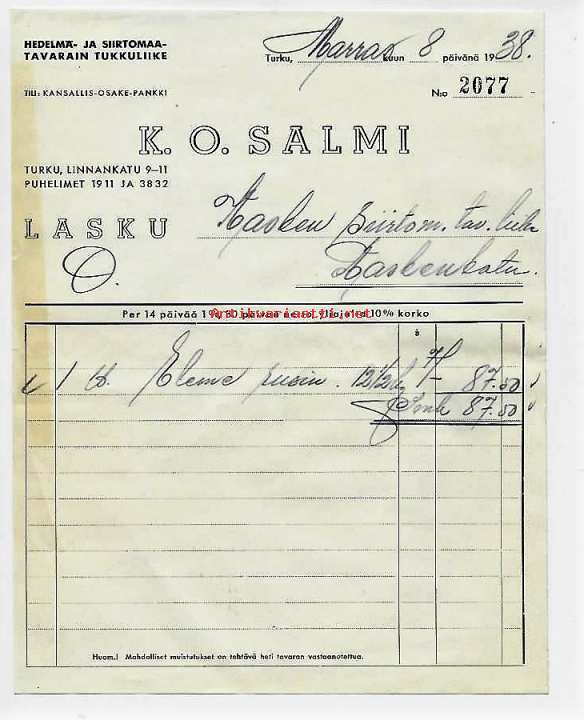 HEDELMÄ- JA SIIRTOMAA-
TAVARAIN TUKKULIIKE
Turku, Marras kuun 8 päivänä 1938.
TILI: KANSALLIS-OSAKE-PANKKI
N:o 2077
K. O. SALMI
TURKU, LINNANKATU 9–11
PUHELIMET 1911 JA 3832
LASKU
Kasken Siirtom. tav. liike
Kaskenkatu.
O.
Per 14 päivää 1 %, 30 päivän netto. 10% korko
Antikvariaatti.net
1 Eleme rusin. 12 1/2 k 7/- 87.50
Smk 87.50
Huom.! Mahdolliset muistutukset on tehtävä heti tavaran vastaanotettua.